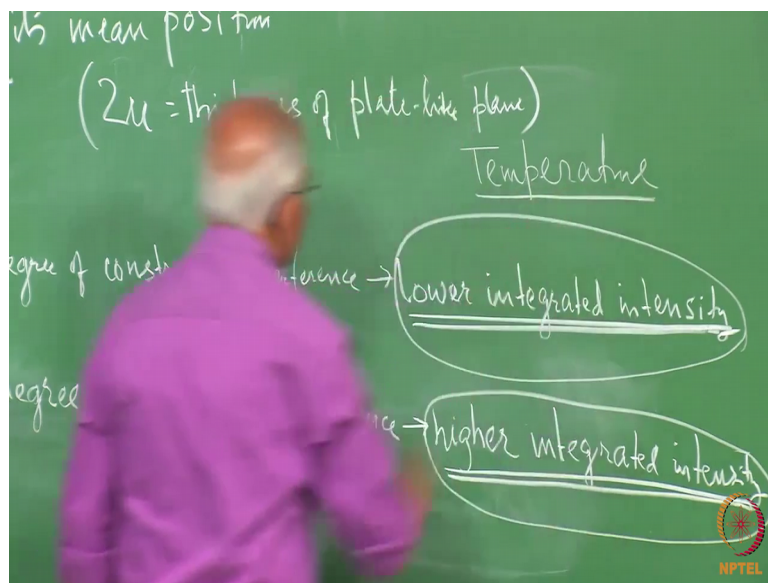 its mean position
(2u = of plate-like plane)
Temperature
egree of interference → lower integrated intensity
egree → higher integrated intensity
NPTEL